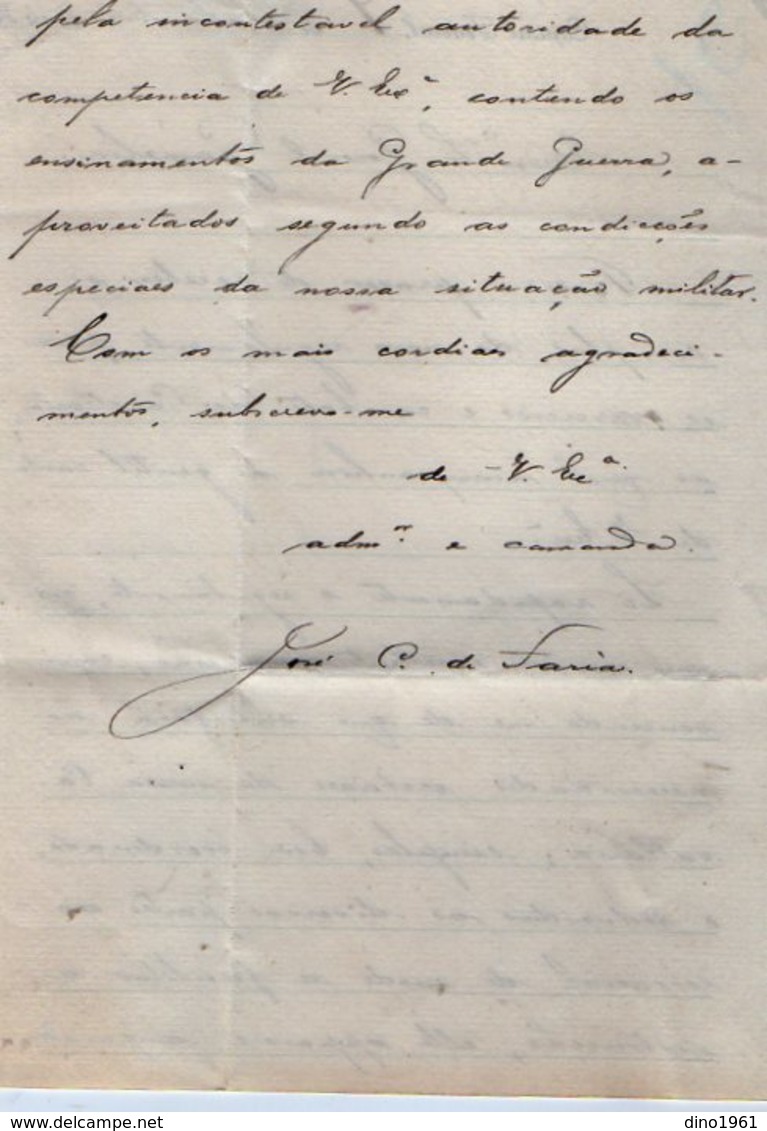 pela incontestavel autoridade da
competencia de V. Exª, contendo os
ensinamentos da Grande Guerra, a-
proveitados segundo as condicções
especiaes da nossa situação militar.
Com os mais cordiaes agradeci-
mentos, subscrevo-me
de V. Excª.
admºʳ. e camarada.
José C. de Faria.
www.delcampe.net
dino1961